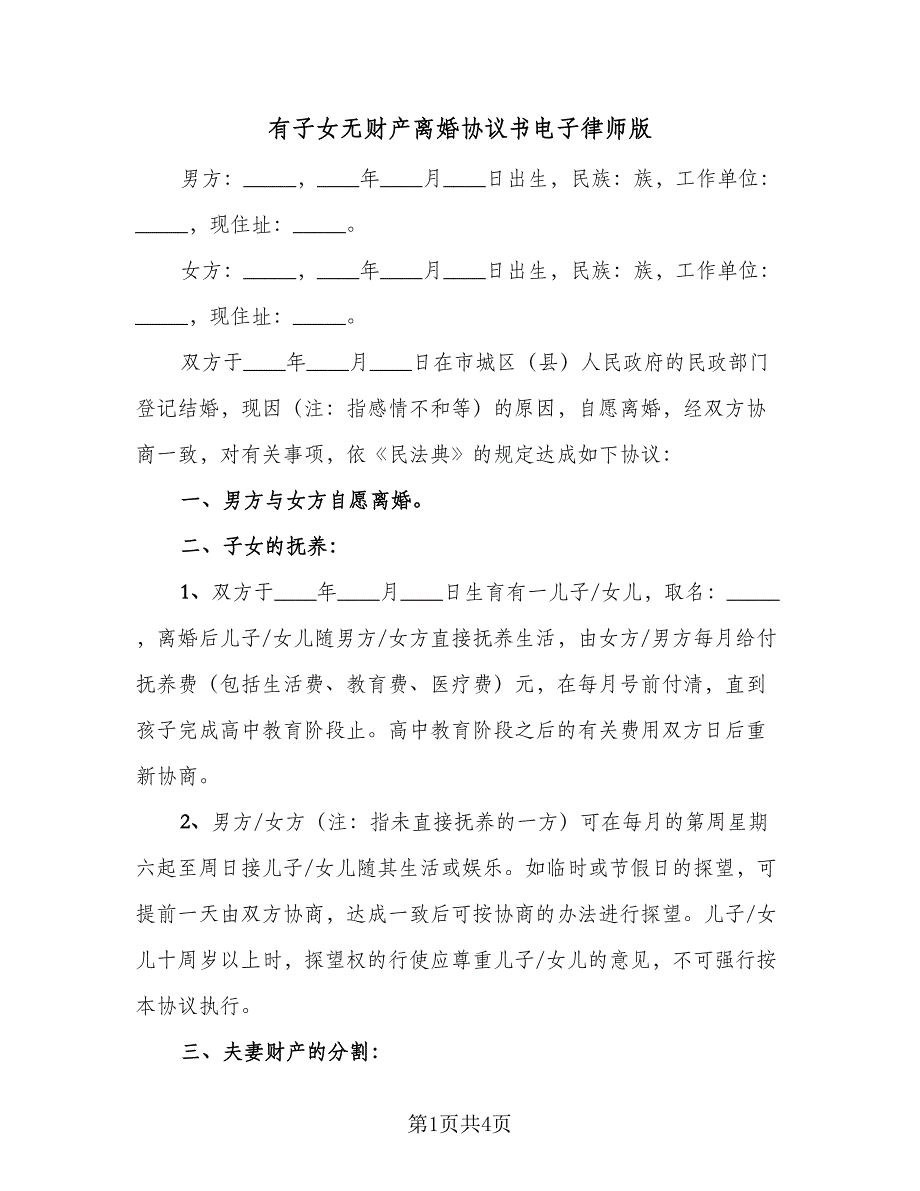 有子女无财产离婚协议书电子律师版
男方：_____，____年____月____日出生，民族：族，工作单位：
_____，现住址：_____。
女方：_____，____年____月____日出生，民族：族，工作单位：
_____，现住址：_____。
双方于____年____月____日在市城区（县）人民政府的民政部门
登记结婚，现因（注：指感情不和等）的原因，自愿离婚，经双方协
商一致，对有关事项，依《民法典》的规定达成如下协议：
一、男方与女方自愿离婚。
二、子女的抚养：
1、双方于____年____月____日生育有一儿子/女儿，取名：_____
，离婚后儿子/女儿随男方/女方直接抚养生活，由女方/男方每月给付
抚养费（包括生活费、教育费、医疗费）元，在每月号前付清，直到
孩子完成高中教育阶段止。高中教育阶段之后的有关费用双方日后重
新协商。
2、男方/女方（注：指未直接抚养的一方）可在每月的第周星期
六起至周日接儿子/女儿随其生活或娱乐。如临时或节假日的探望，可
提前一天由双方协商，达成一致后可按协商的办法进行探望。儿子/女
儿十周岁以上时，探望权的行使应尊重儿子/女儿的意见，不可强行按
本协议执行。
三、夫妻财产的分割：
第1页共4页